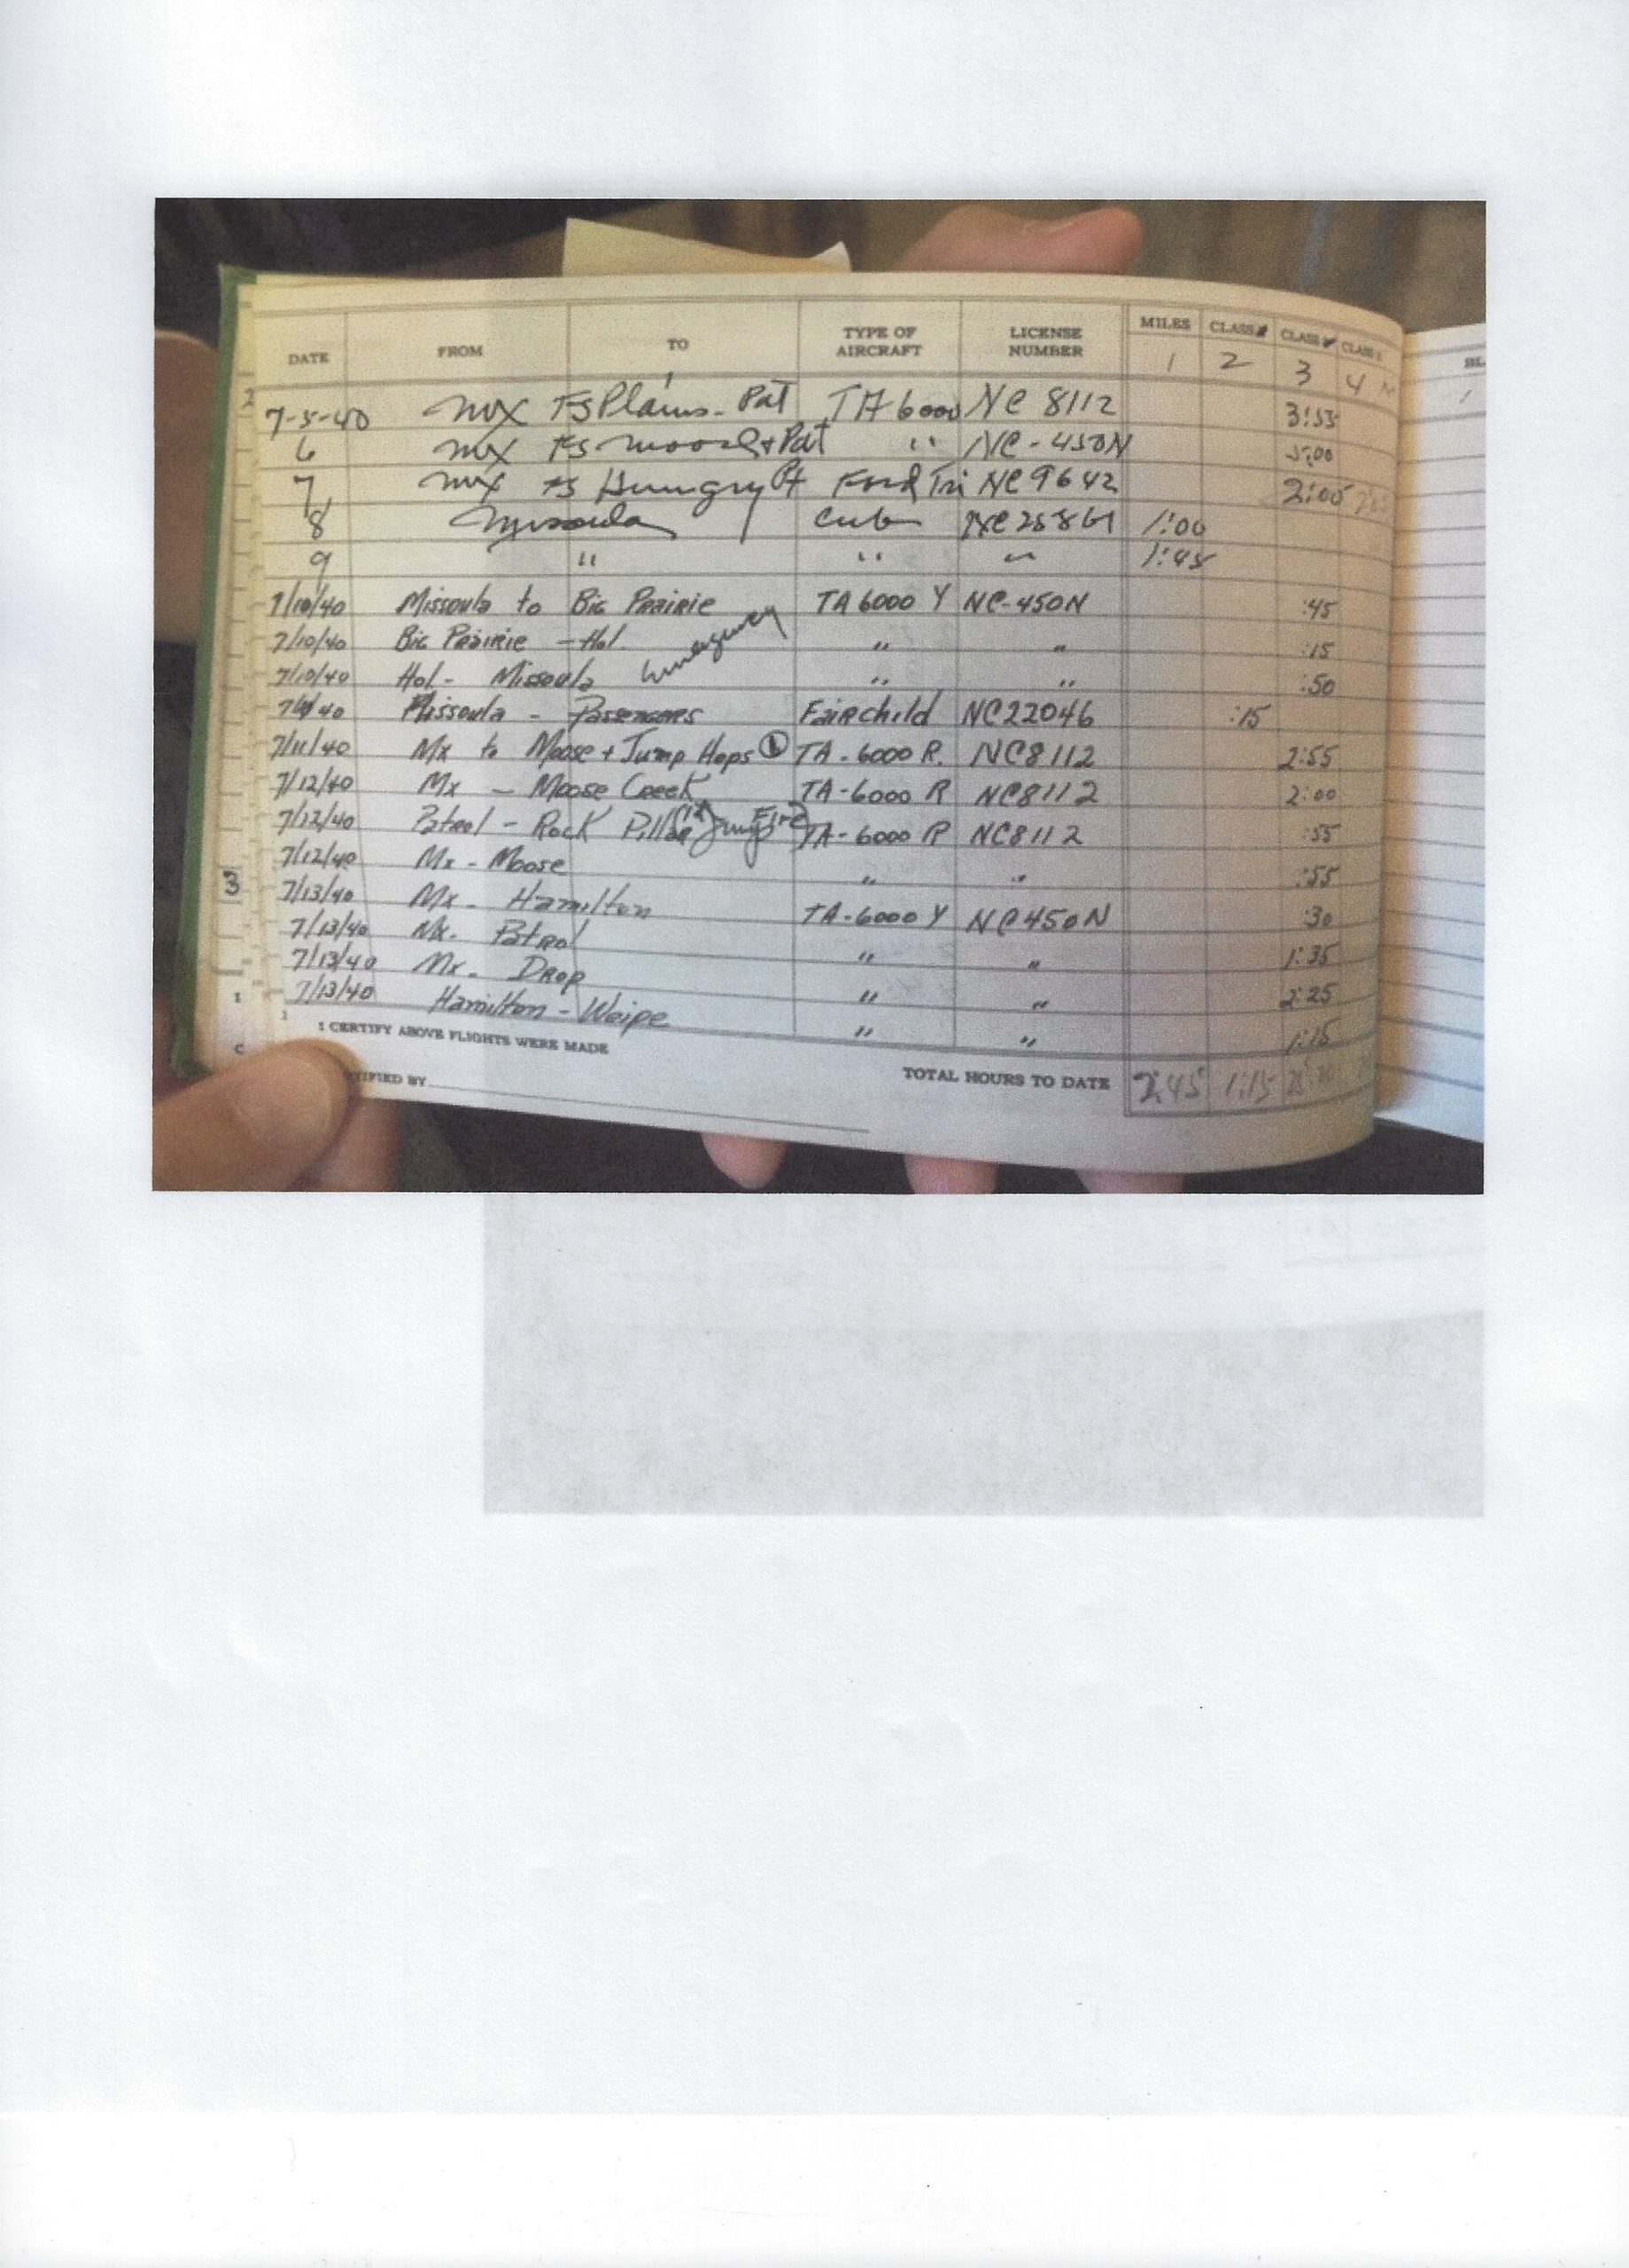 DATE FROM TO TYPE OF AIRCRAFT LICENSE NUMBER MILES CLASS CLASS CLASS
1 2 3 4
7-5-40 MX FS Plains - Pat TA 6000 NC 8112 3:55
6 MX FS Moose + Pat " NC-450N 5:00
7 MX FS Hungry Pt Ford Tri NC 9642 2:05
8 Missoula Cub 1:00
9 " " " 1:45
7/10/40 Missoula to Big Prairie TA 6000 Y NC-450N :45
7/10/40 Big Prairie - Hol. Emergency " " :15
7/10/40 Hol - Missoula " " :50
Missoula - Passengers Fairchild NC22046 :15
7/11/40 Mx to Moose + Jump Hops ① TA-6000 R. NC8112 2:55
7/12/40 Mx - Moose Creek TA-6000 R NC8112 2:00
7/12/40 Patrol - Rock Pillar 1st Jump Fire TA-6000 R NC8112 :55
7/12/40 Mx - Moose " " :55
3
7/13/40 Mx - Hamilton TA-6000 Y NC450N :30
7/13/40 Mx. Patrol " " 1:35
7/13/40 Mx. Drop " " 2:25
7/13/40 Hamilton - Weipe " " 1:15
I CERTIFY ABOVE FLIGHTS WERE MADE
TIFIED BY TOTAL HOURS TO DATE 2:45 1:15